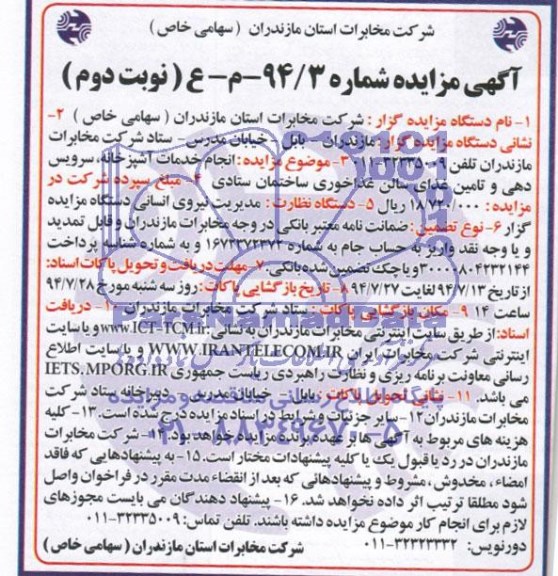 شرکت مخابرات استان مازندران ( سهامی خاص )
آگهی مزایده شماره ۹۴/۳-م-ع ( نوبت دوم )
۱- نام دستگاه مزایده گزار : شرکت مخابرات استان مازندران ( سهامی خاص ) ۲-
نشانی دستگاه مزایده گزار: مازندران - بابل - خیابان مدرس - ستاد شرکت مخابرات
مازندران تلفن ۳۲۳۳۵۰۰۹-۰۱۱ ۳- موضوع مزایده : انجام خدمات آشپزخانه، سرویس
دهی و تامین غذای سالن غذاخوری ساختمان ستادی ۴- مبلغ سپرده شرکت در
مزایده : ۱۸۷۲۰/۰۰۰ ریال ۵- دستگاه نظارت : مدیریت نیروی انسانی دستگاه مزایده
گزار ۶- نوع تضمین : ضمانت نامه معتبر بانکی در وجه مخابرات مازندران و قابل تمدید
و یا وجه نقد واریز به حساب جام به شماره ۱۶۷۳۳۷۲۳۷۳ و به شماره شناسه پرداخت
۳۰۰۰۸۰۴۲۳۲۱۴۴ و یا چک تضمین شده بانکی. ۷- مهلت دریافت و تحویل پاکات اسناد:
از تاریخ ۹۴/۷/۱۳ لغایت ۹۴/۷/۲۷ ۸- تاریخ بازگشایی پاکات : روز سه شنبه مورخ ۹۴/۷/۲۸
ساعت ۱۴ ۹- مکان بازگشایی پاکات : ستاد شرکت مخابرات مازندران ۱۰- دریافت
اسناد: از طریق سایت اینترنتی مخابرات مازندران به نشانی www.ICT-TCM.ir. و یا سایت
اینترنتی شرکت مخابرات ایران WWW.IRANTELECOM.IR و یا سایت اطلاع
رسانی معاونت برنامه ریزی و نظارت راهبردی ریاست جمهوری IETS.MPORG.IR
می باشد. ۱۱- نشانی تحویل پاکات : بابل - خیابان مدرس - دبیرخانه ستاد شرکت
مخابرات مازندران ۱۲- سایر جزئیات و شرایط در اسناد مزایده درج شده است. ۱۳- کلیه
هزینه های مربوط به آگهی ها بر عهده برنده مزایده خواهد بود. ۱۴- شرکت مخابرات
مازندران در رد یا قبول یک یا کلیه پیشنهادات مختار است. ۱۵- به پیشنهادهایی که فاقد
امضاء، مخدوش، مشروط و پیشنهاداتی که بعد از انقضاء مدت مقرر در فراخوان واصل
شود مطلقا ترتیب اثر داده نخواهد شد. ۱۶- پیشنهاد دهندگان می بایست مجوزهای
لازم برای انجام کار موضوع مزایده داشته باشند. تلفن تماس: ۳۲۳۳۵۰۰۹-۰۱۱
دورنویس: ۳۲۳۲۳۳۳۲-۰۱۱
شرکت مخابرات استان مازندران ( سهامی خاص )